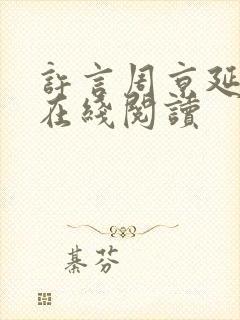 許言周京延
在綫閱讀
綦芬